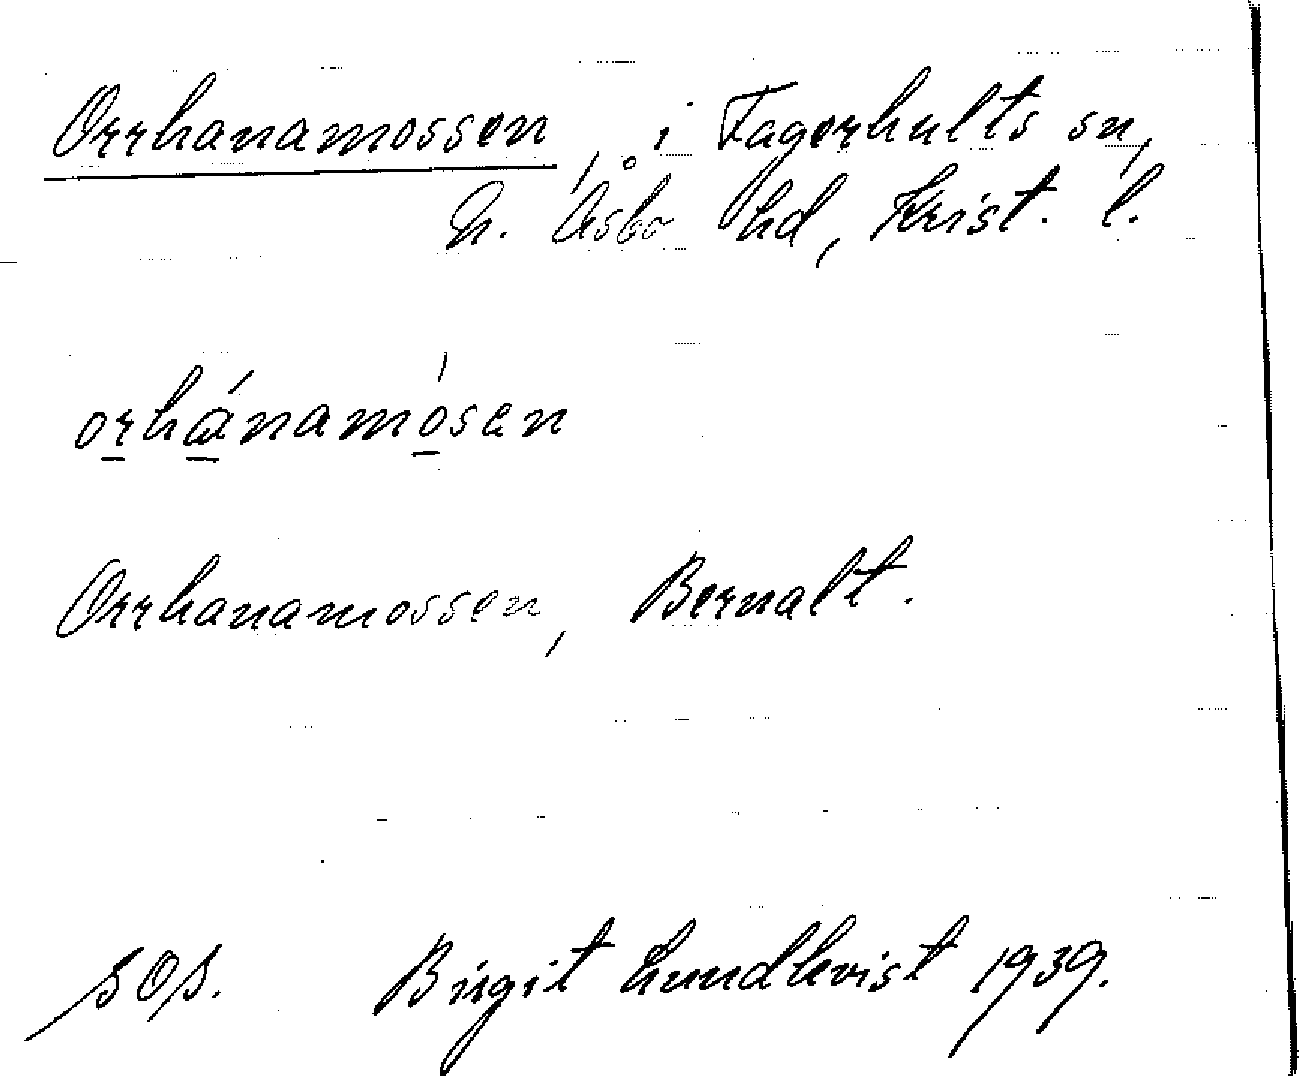 Orrhanamossen, i Fagerhults sn,
N. Åsbo hd, Krist. l.
orhánamósen
Orrhanamossen, Bernalt.
SOS. Birgit Lundkvist 1939.